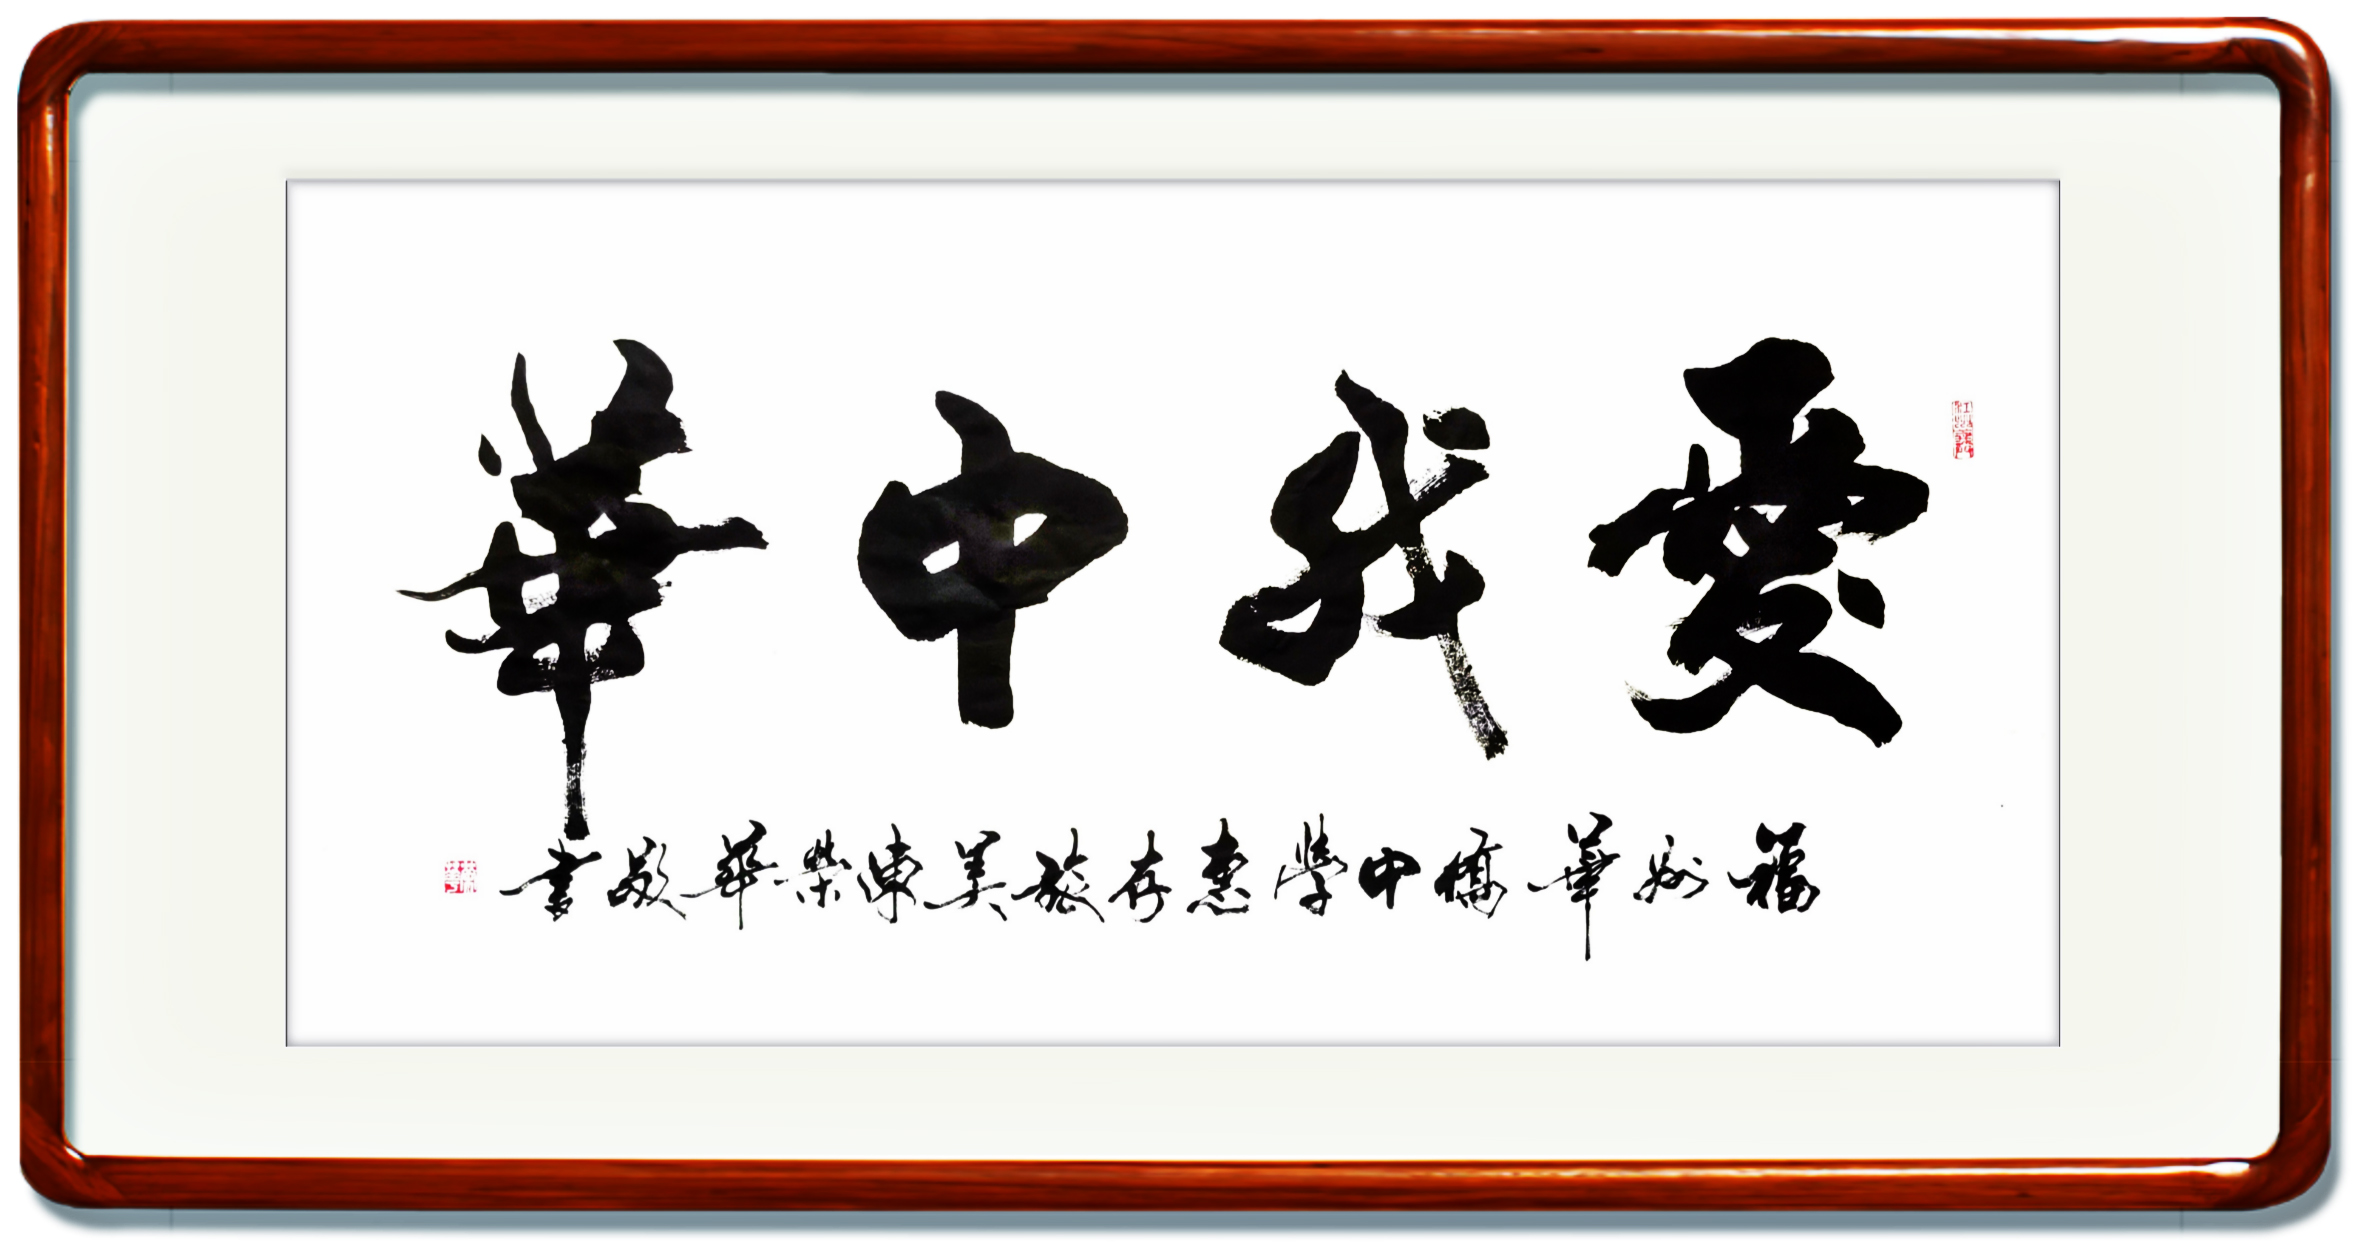 愛我中華
福州華僑中學惠存旅美陳榮華敬書